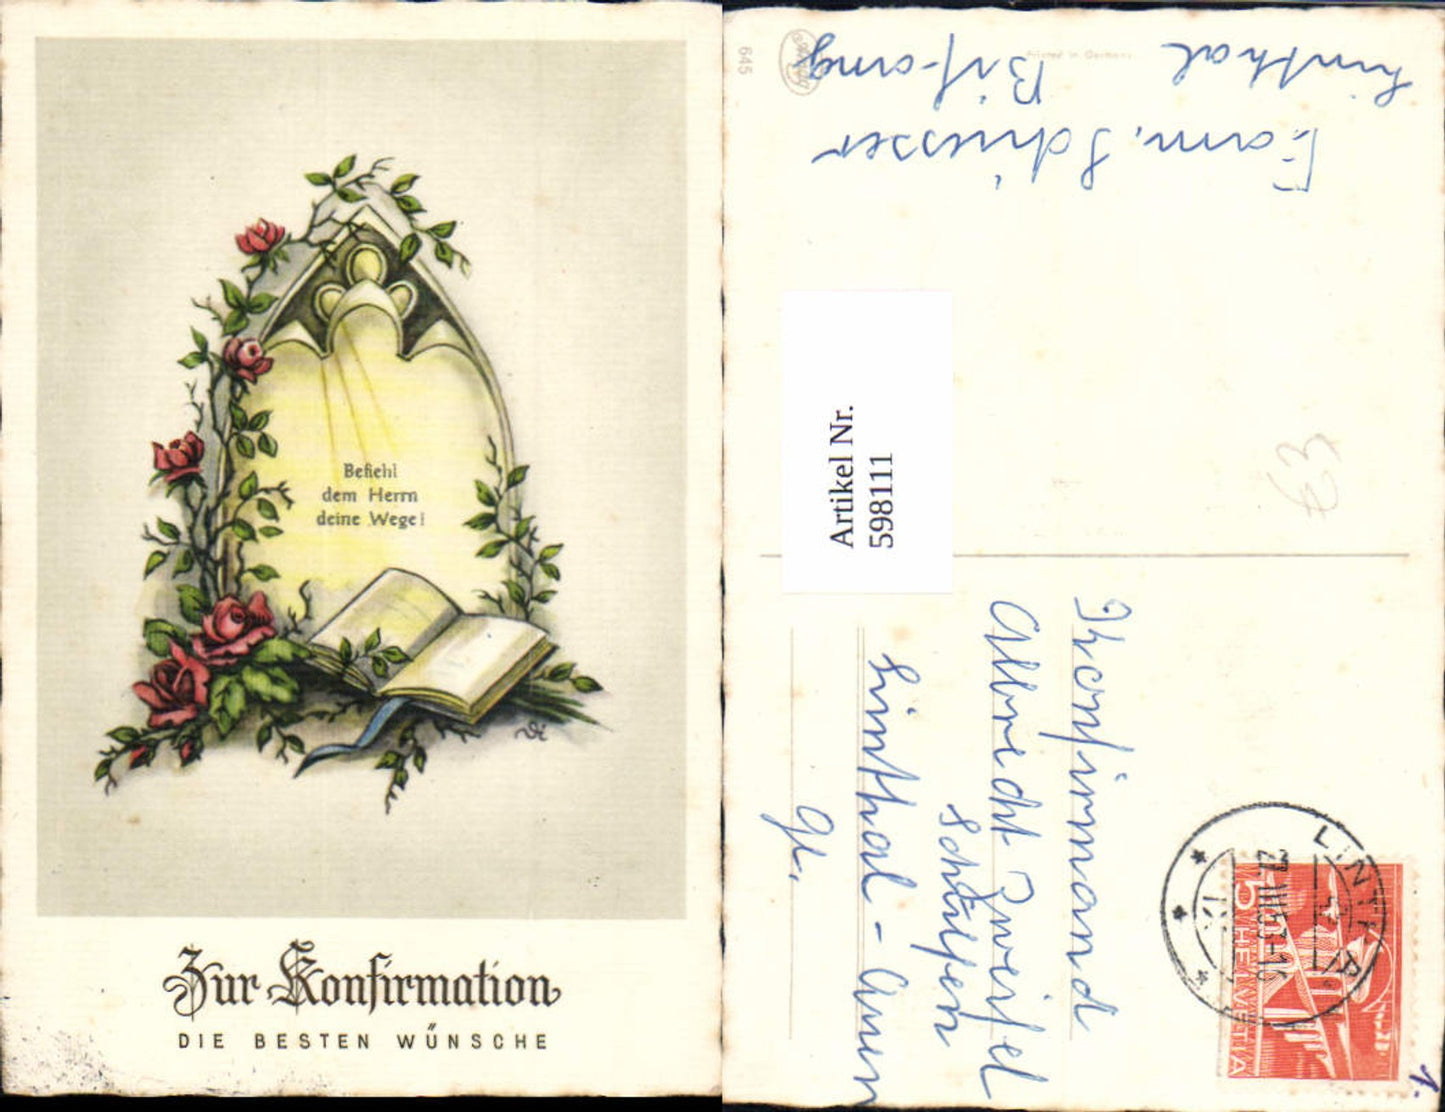 Befiehl
dem Herrn
deine Wege!
Zur Konfirmation
DIE BESTEN WÜNSCHE
645
Printed in Germany
Fam. Schiesser
Bifang
Linthal
Artikel Nr.
598111
€3
Konfirmand
Albrecht Zweifel
Linthal - Auen
Gl.
LINTHAL
27.III.53-16
5
HELVETIA
1.